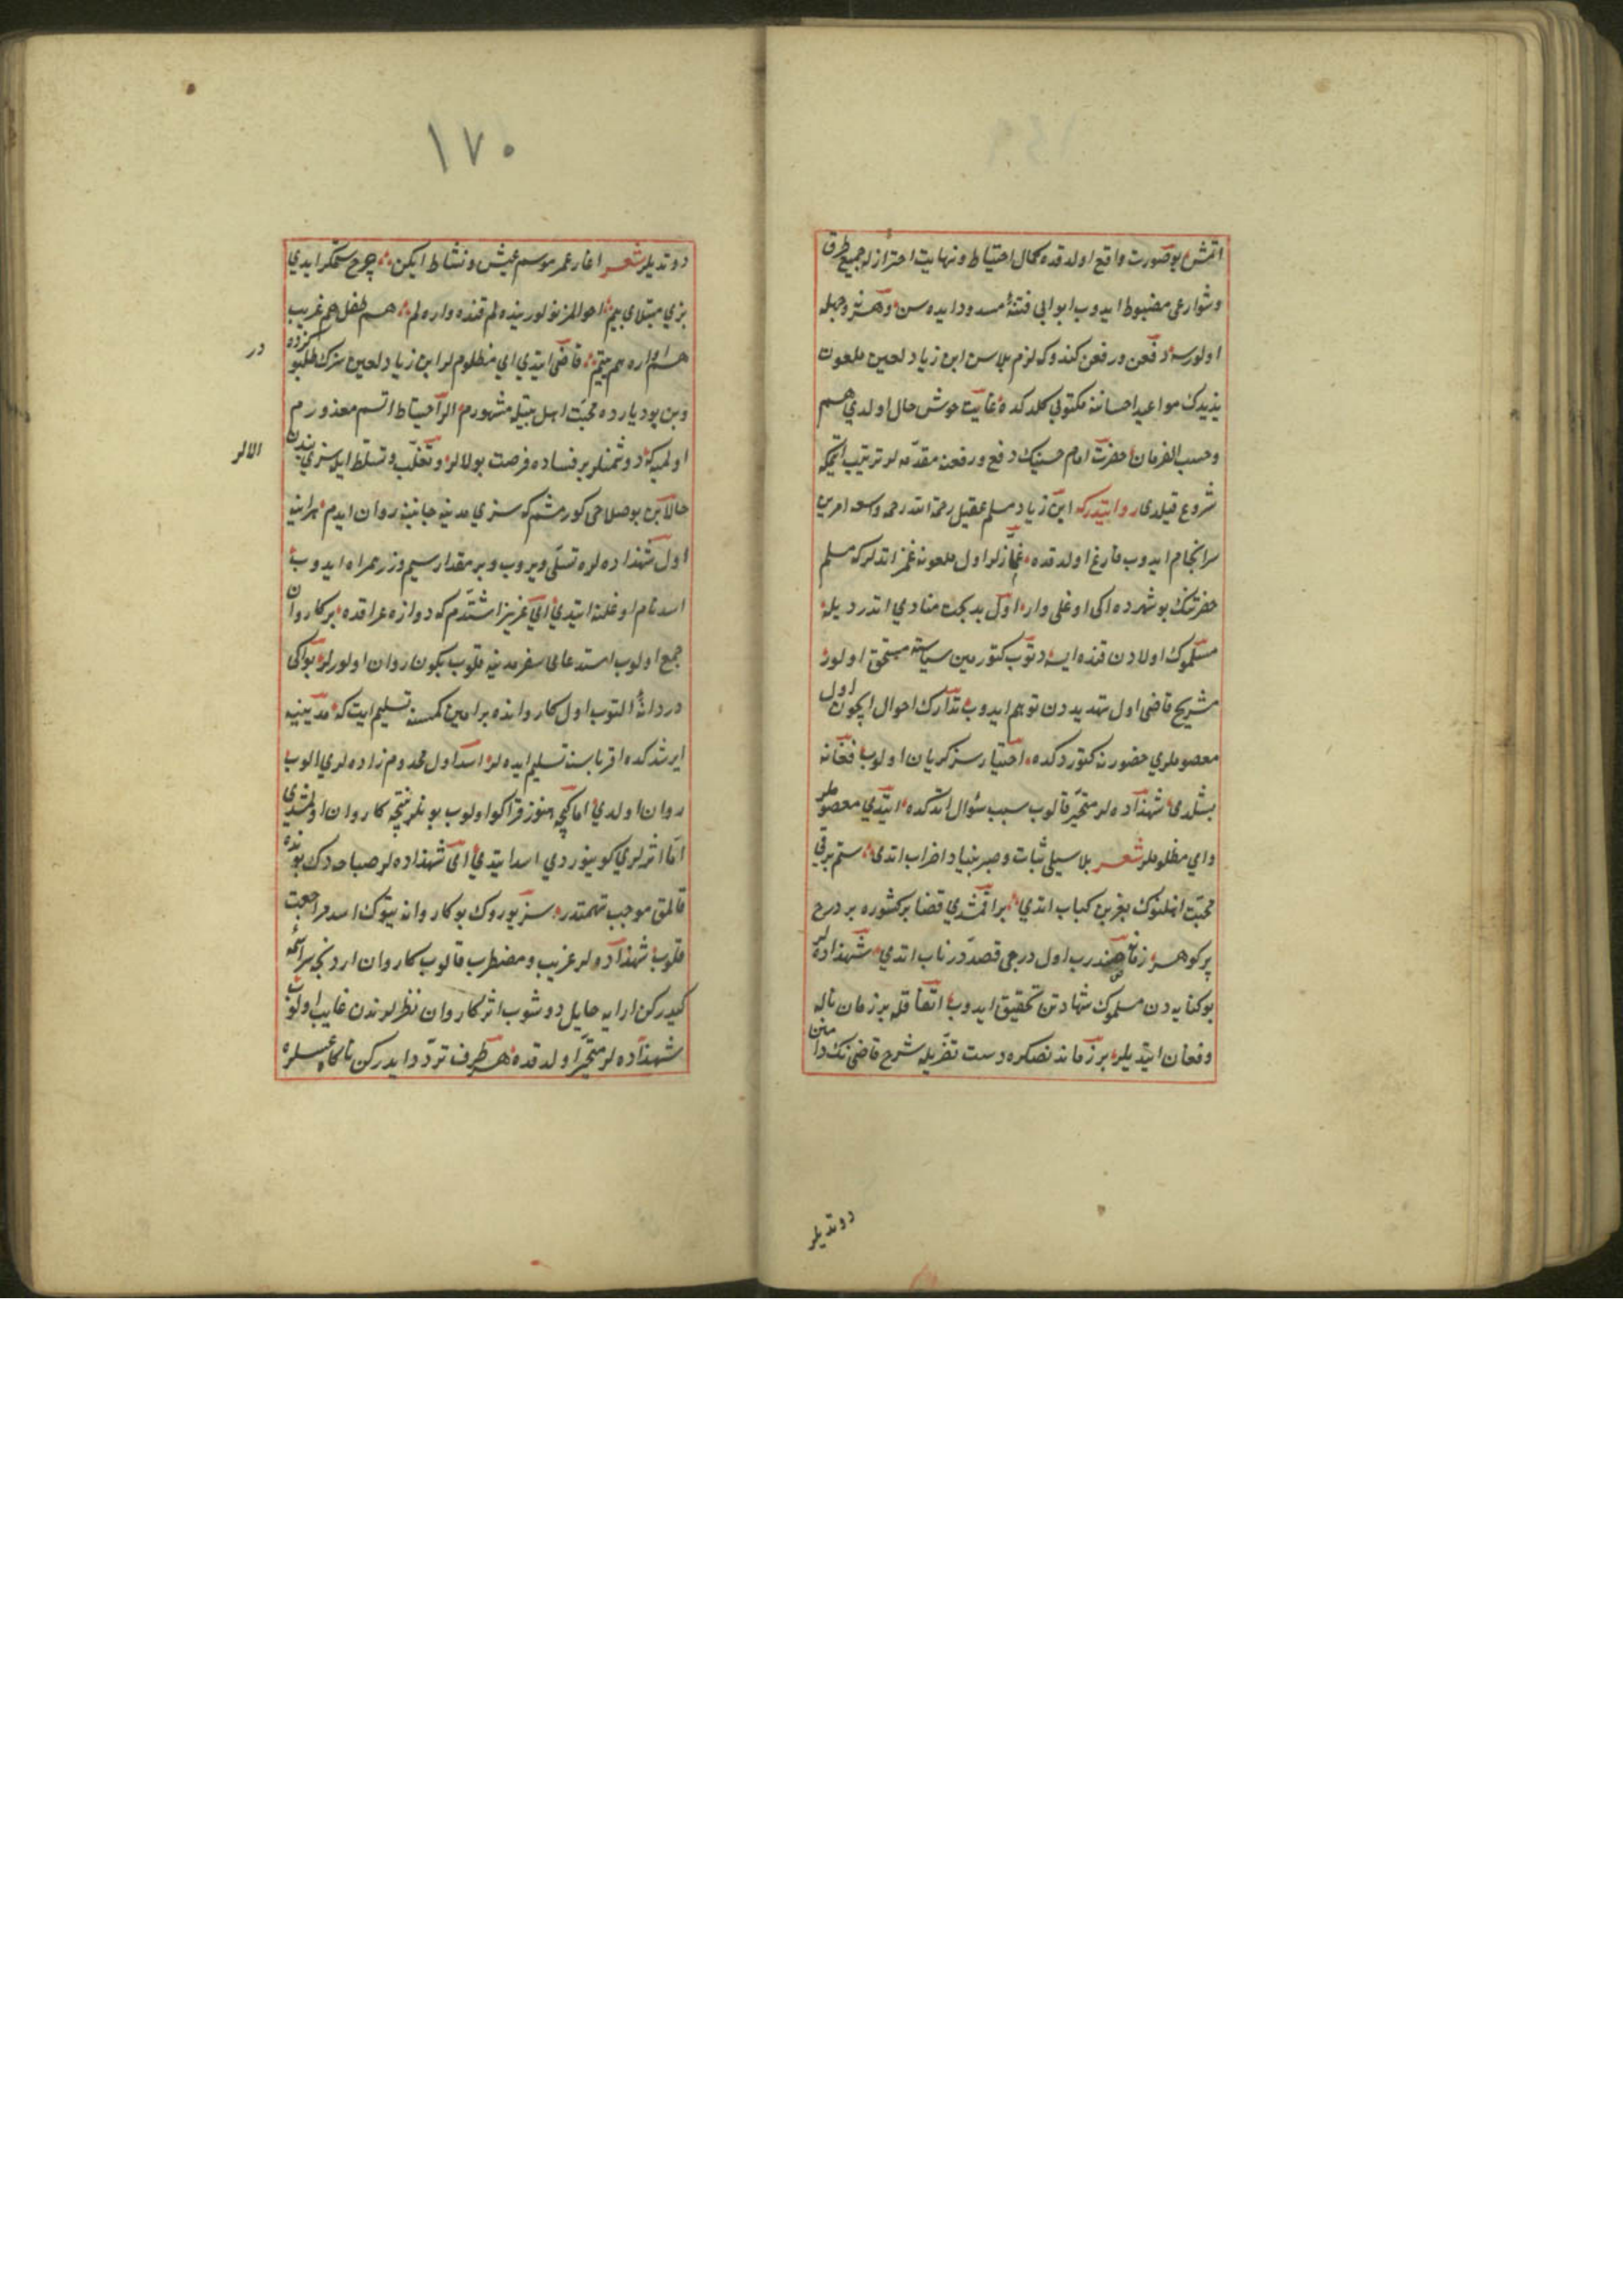 اتمش بوصورت واقع اولدقده كمال احتياط ونهايت احتراز له جميع طرق
وشوارعى مضبوط ايدوب ابوابى فتنۀ مسدود ايده سن وهر نه وجهله
اولورسه دفعن ورفعن كندوكه لازم بلاسن ابن زياد لعين ملعون
يزيدك مواعيد احساننه مكتوبى كلدكده غايت خوش حال اولدى هم
وحسب الفرمان حضرت امام حسينك دفع ورفعنه مقدمه لر ترتيب اتمكه
شروع قيلدى روايتدركه ابن زياد مسلم عقيل رحمة الله رحمة واسعه امرين
سرانجام ايدوب فارغ اولدقده غمازلر اول ملعونه غمز اتدلركه مسلم
حضرتنك بو شهرده ايكى اوغلى وار اول بدبخت منادى اتدرديله
مسلموك اولادن قنده ايسه دتوب كتورمين سياسته مستحق اولور
شريح قاضى اول تهديددن توهم ايدوب تدارك احوال ايچون اول
معصوملرى حضورنه كتوردكده اختيارسز كريان اولوب فغانه
بشلدى شهزاده لر متحير قالوب سبب سؤال اتدكده ايتدى معصوملر
واى مظلوملر شعر بلا سيلى ثبات وصبر بنياد اخراب اتدى ستم برقى
محبت اهلنوك بغرين كباب اتدى براقمشدى قضا بر كشوره بر درج
پر كوهر زمانه هندرب اول درجى قصد در ناب اتدى شهزاده لر
بو كنايه دن مسلموك شهادتن تحقيق ايدوب اتفاقله بر زمان ناله
وفغان ايتديلر بر زماندنصكره دست تضرعله شريح قاضينك دامنن
دوتديلر
١٧٠
دوتديلر شعر اغاز عمر موسم عيش ونشاط ايكن چرخ ستمكر ايدى
بزى مبتلاى بيم احوالمز نولور نيده لم قنده واره لم هم طفل هم غريب
هم اواره هم يتيم قاضى ايتدى اى مظلوملر ابن زياد لعين سزك طلبوكزده در
وبن بو ديارده محبت اهل بيتله مشهورم اكر احتياط اتسم معذورم
اولميه كه دوشمنلر بر فساده فرصت بولالر وتغلب وتسلط ايله سزى بندن الالر
حالا بن بو صلاحى كورمشم كه سزى مدينه جانبنه روان ايدم پس
اول شهزاده لره تسلى ويروب وبر مقدار سيم وزر همراه ايدوب
اسد نام اوغلنه ايتدى اى عزيز اشتدم كه دروازه عراقده بر كاروان
جمع اولوب استدعاى سفر مدينه قلوب بكون روان اولورلر بو ايكى
دردانۀ التوب اول كاروانده بر امين كمسنه تسليم ايت كه مدينيه
ايرشدكده اقرباسنه تسليم ايده لر اسد اول مخدوم زاده لرى الوب
روان اولدى اما كيجه هنوز قراكو اولوب بونلر يتنجه كاروان اولمشدى
اما اثرلرى كوينوردى اسد ايتدى اى شهزاده لر صباحه دك بونده
قالمق موجب تهمتدر سز يوروك بو كاروانه يتوك اسد مراجعت
قلوب شهزاده لر غريب ومضطرب قالوب كاروان اردنجه سراسيمه
كيدركن ارايه حايل دوشوب اثر كاروان نظرلرندن غايب اولوب
شهزاده لر متحير اولدقده هر طرف تردد ايدركن ناكاه عسلره